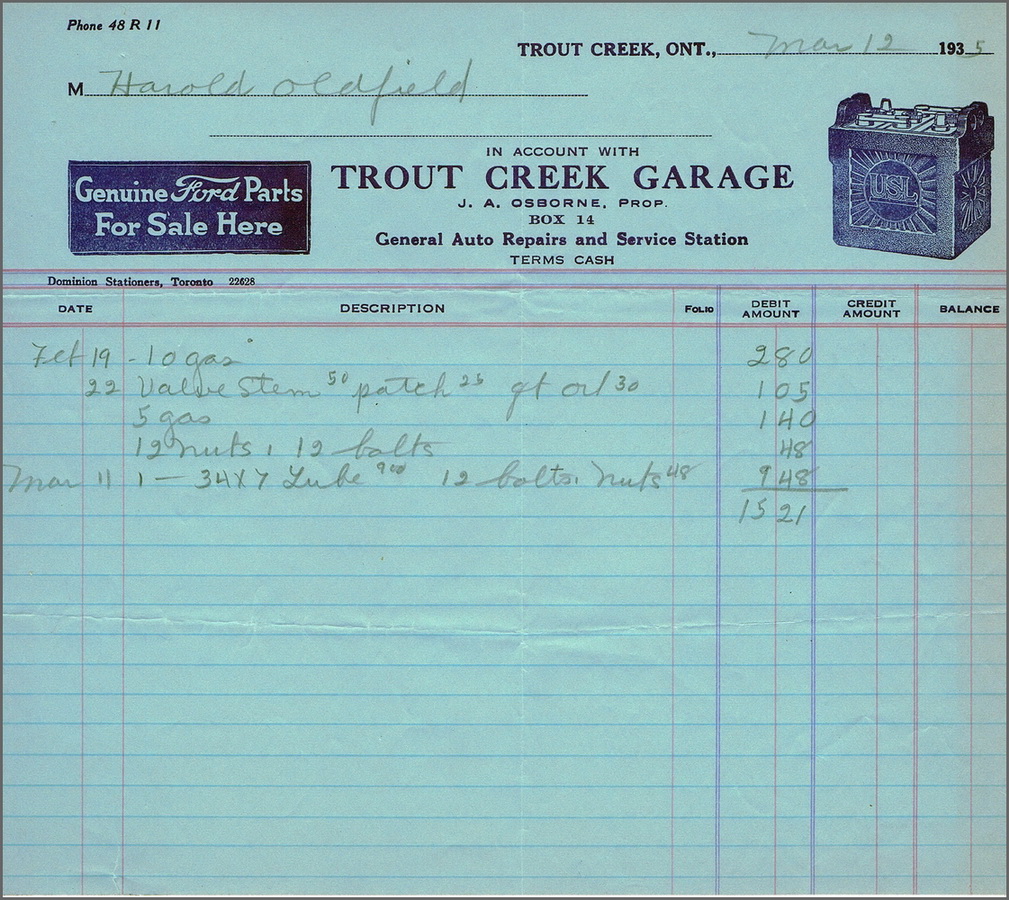 Phone 48 R 11
TROUT CREEK, ONT., Mar 12 1935
M Harold Oldfield
IN ACCOUNT WITH
TROUT CREEK GARAGE
J. A. OSBORNE, PROP.
BOX 14
General Auto Repairs and Service Station
TERMS CASH
Genuine Ford Parts
For Sale Here
USL
Dominion Stationers, Toronto 22628
DATE DESCRIPTION FOLIO DEBIT AMOUNT CREDIT AMOUNT BALANCE
Feb 19 - 10 gas 2 80
22 Valve Stem 50 patch 25 qt oil 30 1 05
5 gas 1 40
12 nuts, 12 bolts 48
Mar 11 1 — 34X7 Tube 9 00 12 bolts, nuts 48 9 48
15 21